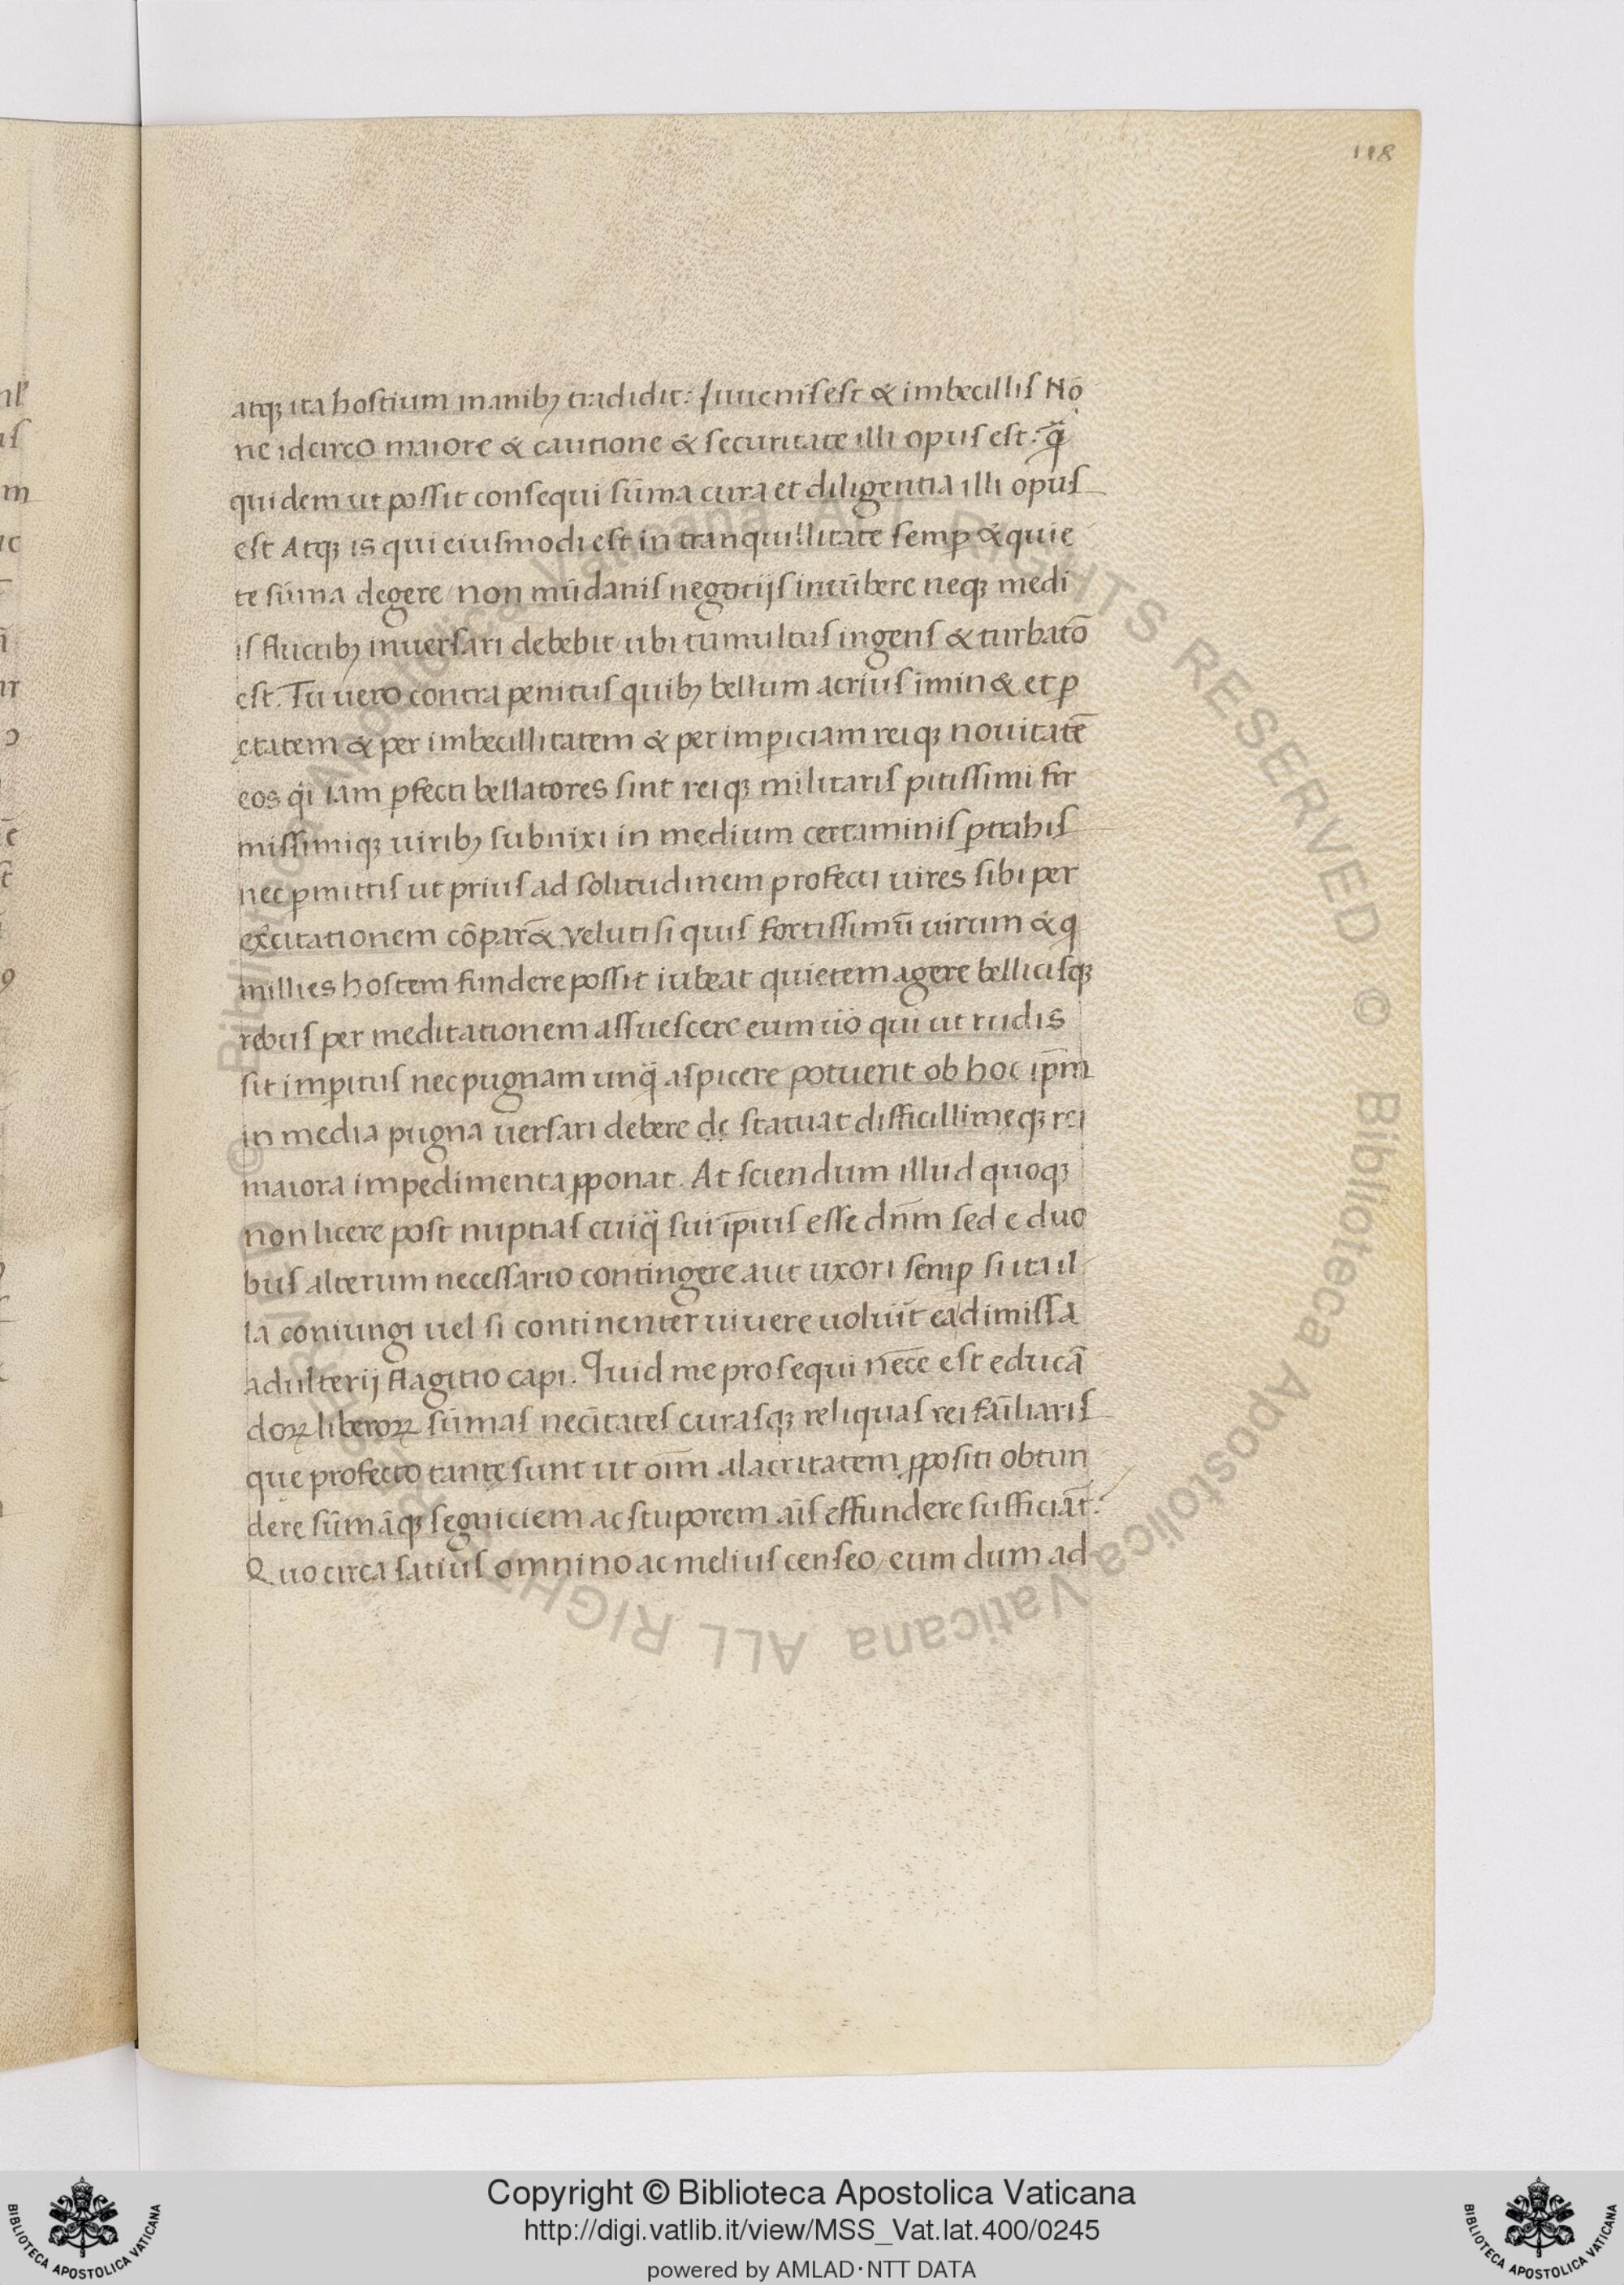 118
atqꝫ ita hostium manibꝫ tradidit: Iuuenis est & imbecillis Nō
ne idcirco maiore & cautione & securitate illi opus est: q̄
quidem ut possit consequi sūma cura et diligentia illi opus
est Atqꝫ is qui eiusmodi est in tranquillitate semꝑ & quie
te sūma degere / non mūdanis negotijs incūbere neqꝫ medi
is fluctibꝫ inuersari debebit ubi tumultus ingens & turbatō
est. Tu uero contra penitus quibꝫ bellum acrius īmin& et ꝑ
etatem & per imbecillitatem & per imꝑiciam reiqꝫ nouitatē
eos qi iam ꝑfecti bellatores sint reiqꝫ militaris ꝑitissimi fir
missimiqꝫ uiribꝫ subnixi in medium certaminis ꝓtrahis
nec ꝑmittis ut prius ad solitudinem profecti uires sibi per
exc̄itationem cōpar& Veluti si quis fortissimū uirum & q
millies hostem fundere possit iubeat quietem agere bellicisqꝫ
rebus per meditationem assuescere eum uō qui ut rudis
sit imꝑitus nec pugnam unq̄ aspicere potuerit ob hoc ip̄m
in media pugna uersari debere de statuat difficillimeqꝫ rei
maiora impedimenta ꝓponat. At sciendum illud quoqꝫ
non licere post nuptias cuiq̄ sui ip̄ius esse dn̄m sed e duo
bus alterum necessario contingere aut uxori semꝑ si ita il
la coniungi uel si continenter uiuere uoluīt ea dimissa
adulterij flagitio capi. Quid me prosequi nēce est educā
doꝝ liberoꝝ sūmas necītates curasqꝫ reliquas rei fāiliaris
que profecto tantę sunt ut oīm alacritatem ꝓpositi obtun
dere sūmāqꝫ segniciem ac stuporem aīs effundere sufficiāt:
Quo circa satius omnino ac melius censeo / eum dum ad
Copyright © Biblioteca Apostolica Vaticana
http://digi.vatlib.it/view/MSS_Vat.lat.400/0245
powered by AMLAD·NTT DATA